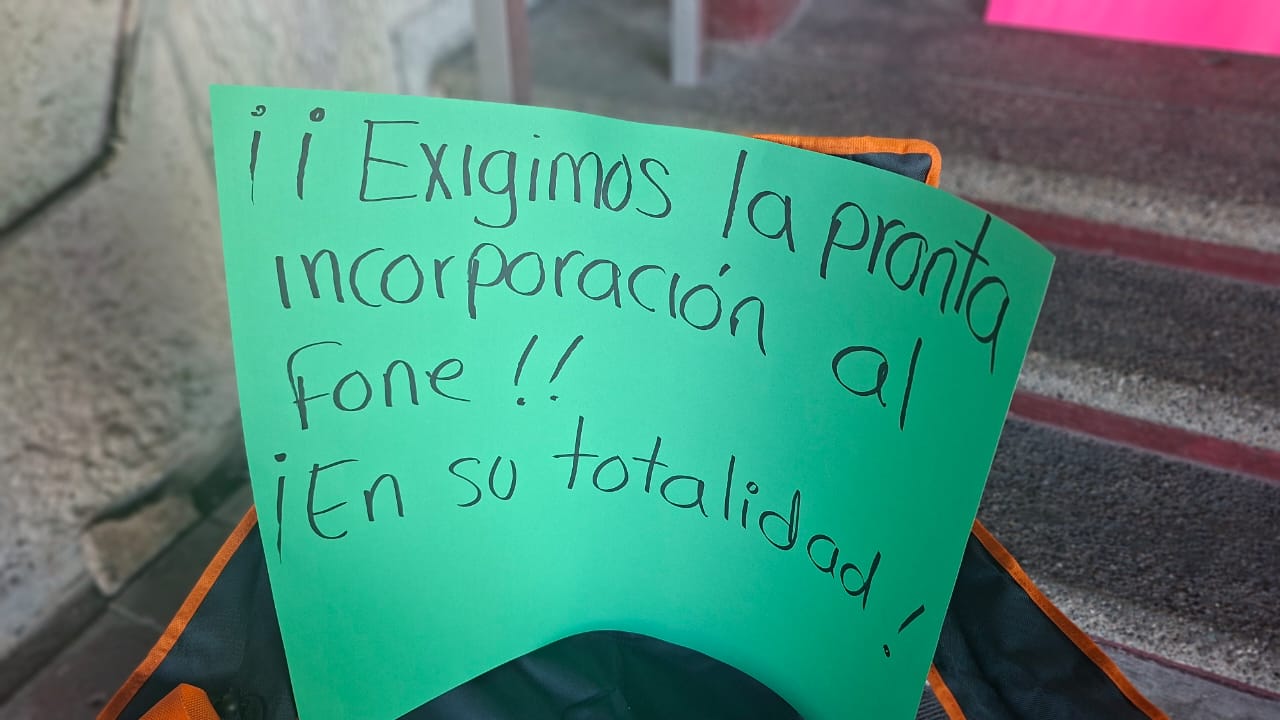 ¡¡Exigimos la pronta
incorporación al
Fone!!
¡En su totalidad!